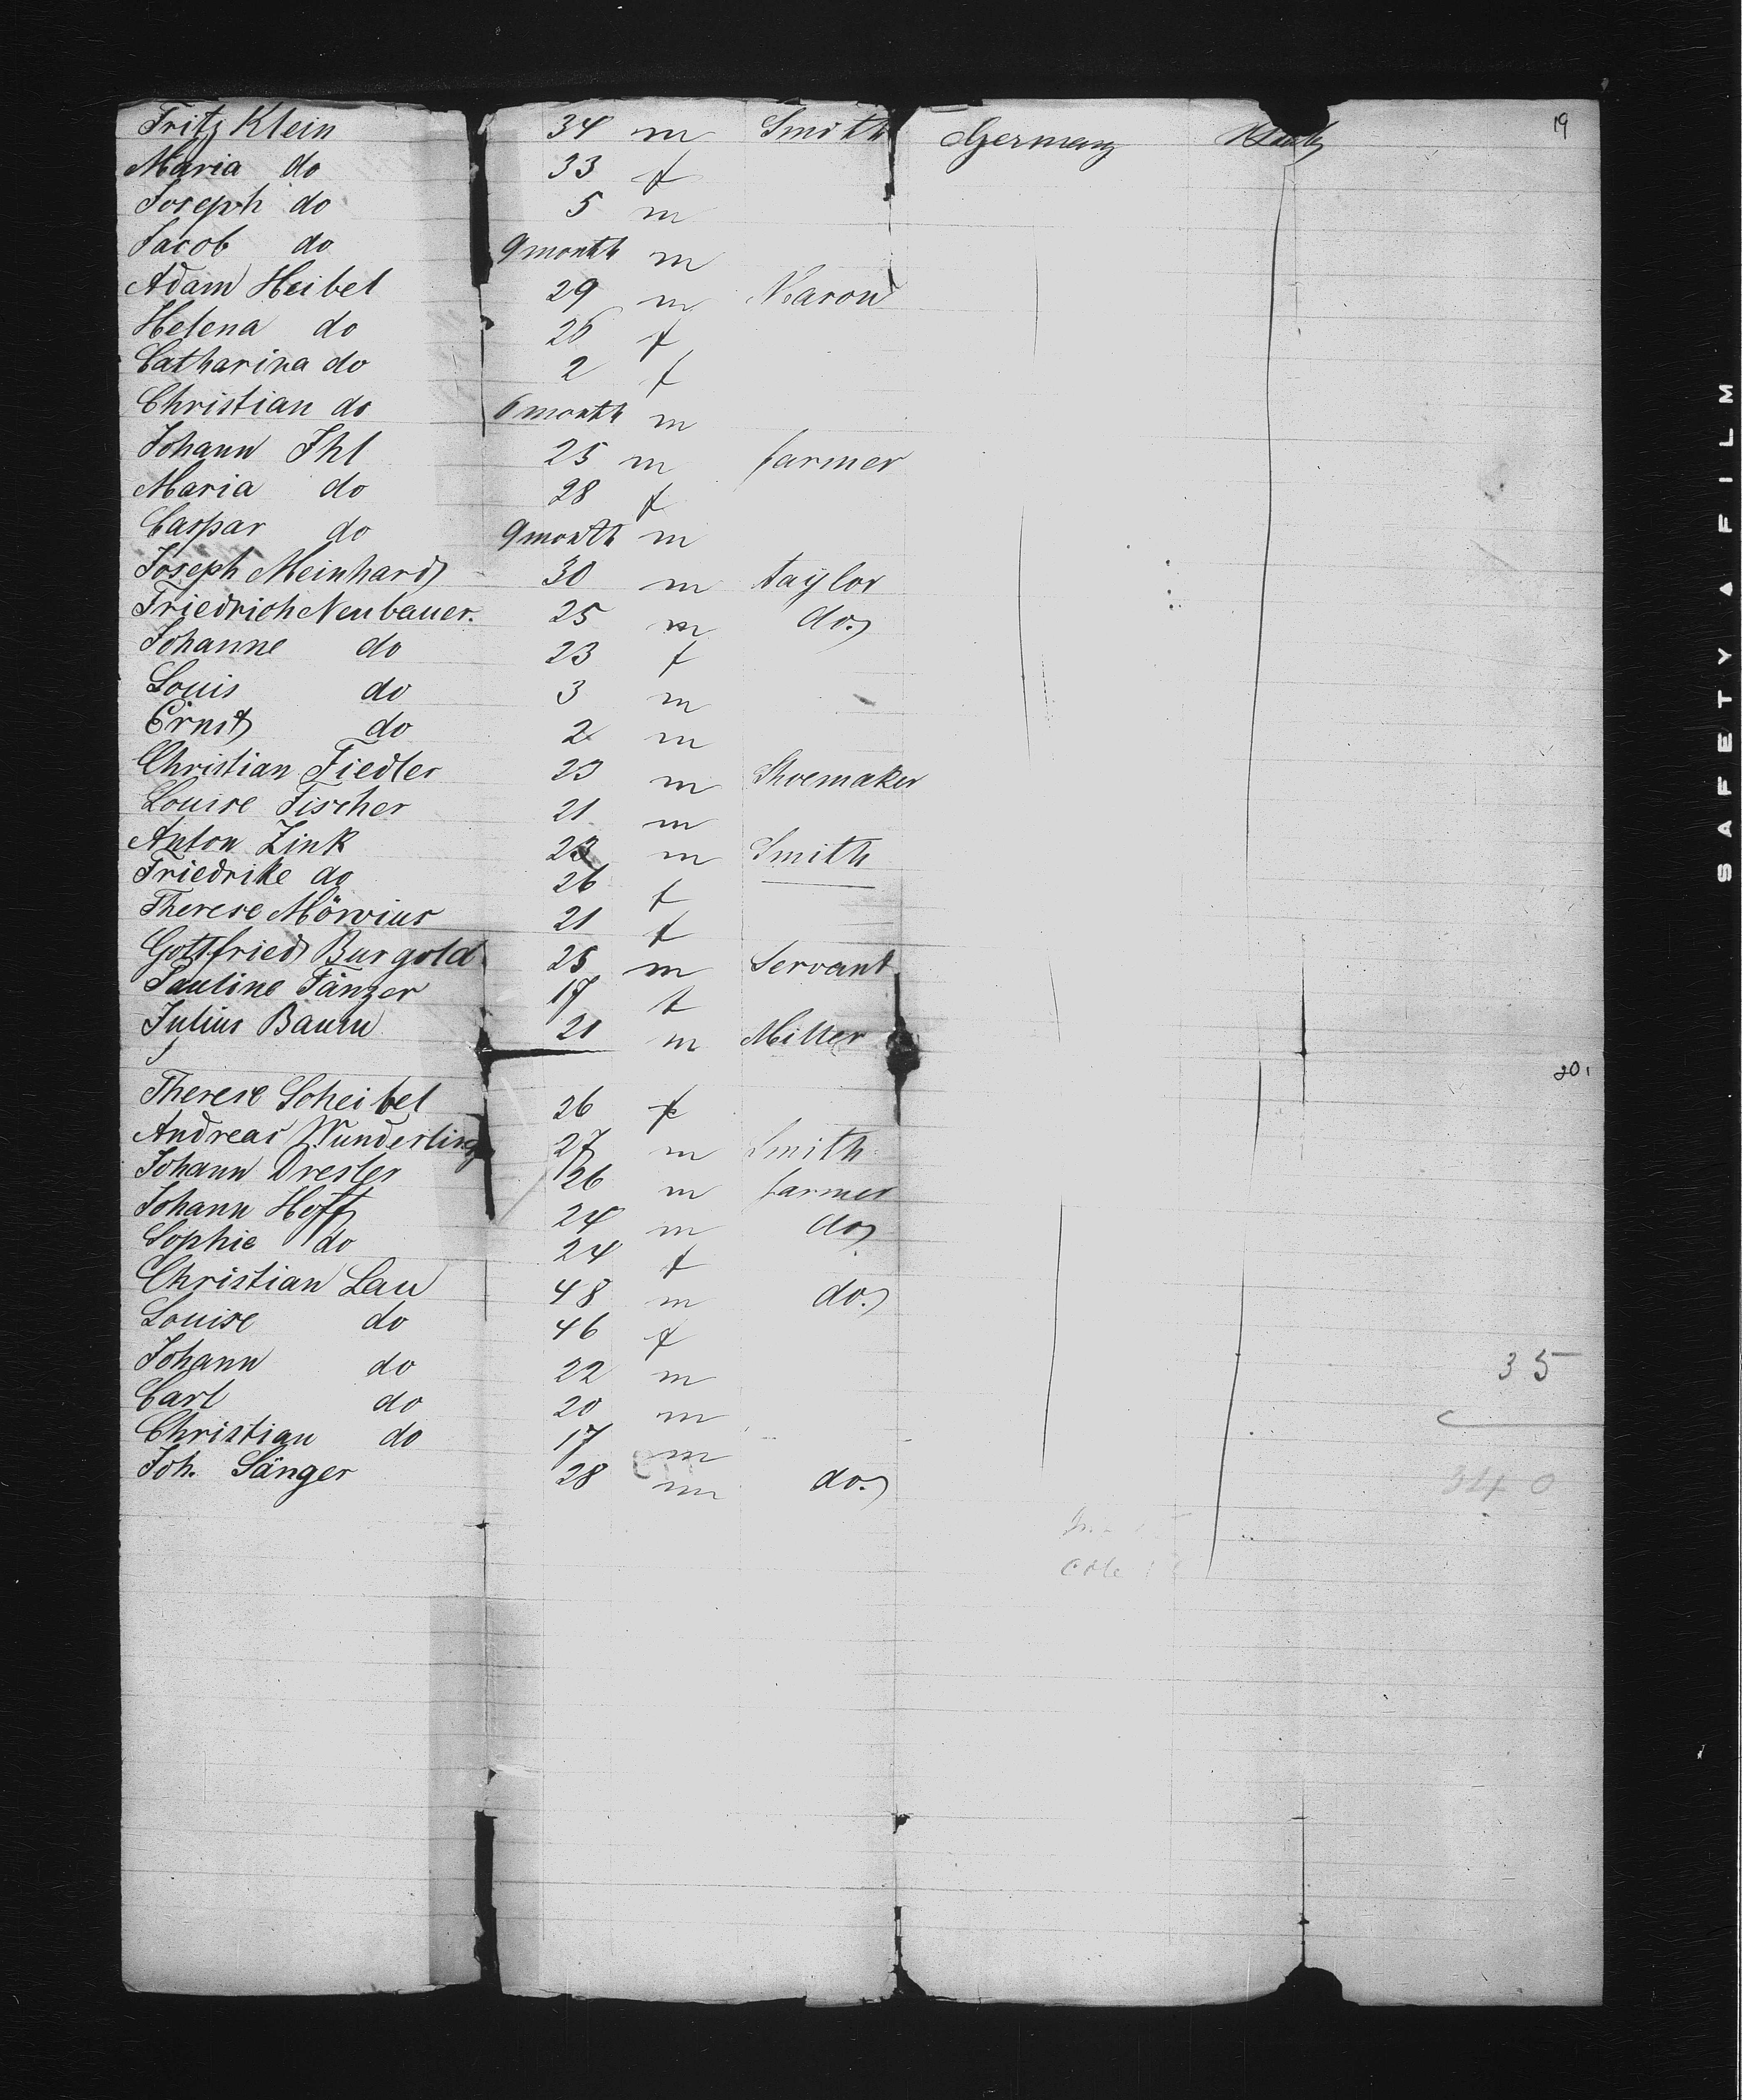 Fritz Klein 34 m Smith Germany 19
Maria do 33 f
Joseph do 5 m
Jacob do 9 month m
Adam Heibel 29 m Mason
Helena do 26 f
Catharina do 2 f
Christian do 6 month m
Johann Ihl 25 m farmer
Maria do 28 f
Caspar do 9 month m
Joseph Meinhard 30 m taylor
Friedrich Neubauer. 25 m do.
Johanne do 23 f
Louis do 3 m
Ernst do 2 m
Christian Fiedler 23 m Shoemaker
Louise Fischer 21 m
Anton Zink 23 m Smith
Friedrike do 26 f
Therese Mörvius 21 f
Gottfried Burgold 25 m Servant
Pauline Tänzer 17 f
Julius Baum 21 m Miller
20
Therese Scheibel 26 f
Andreas Wunderling 27 m Smith
Johann Dresler 26 m farmer
Johann Hoff 24 m do
Sophie do 24 f
Christian Lau 48 m do.
Louise do 46 f
Johann do 22 m 35
Carl do 20 m
Christian do 17 m
Joh. Sänger 28 m do. 340
SAFETY FILM